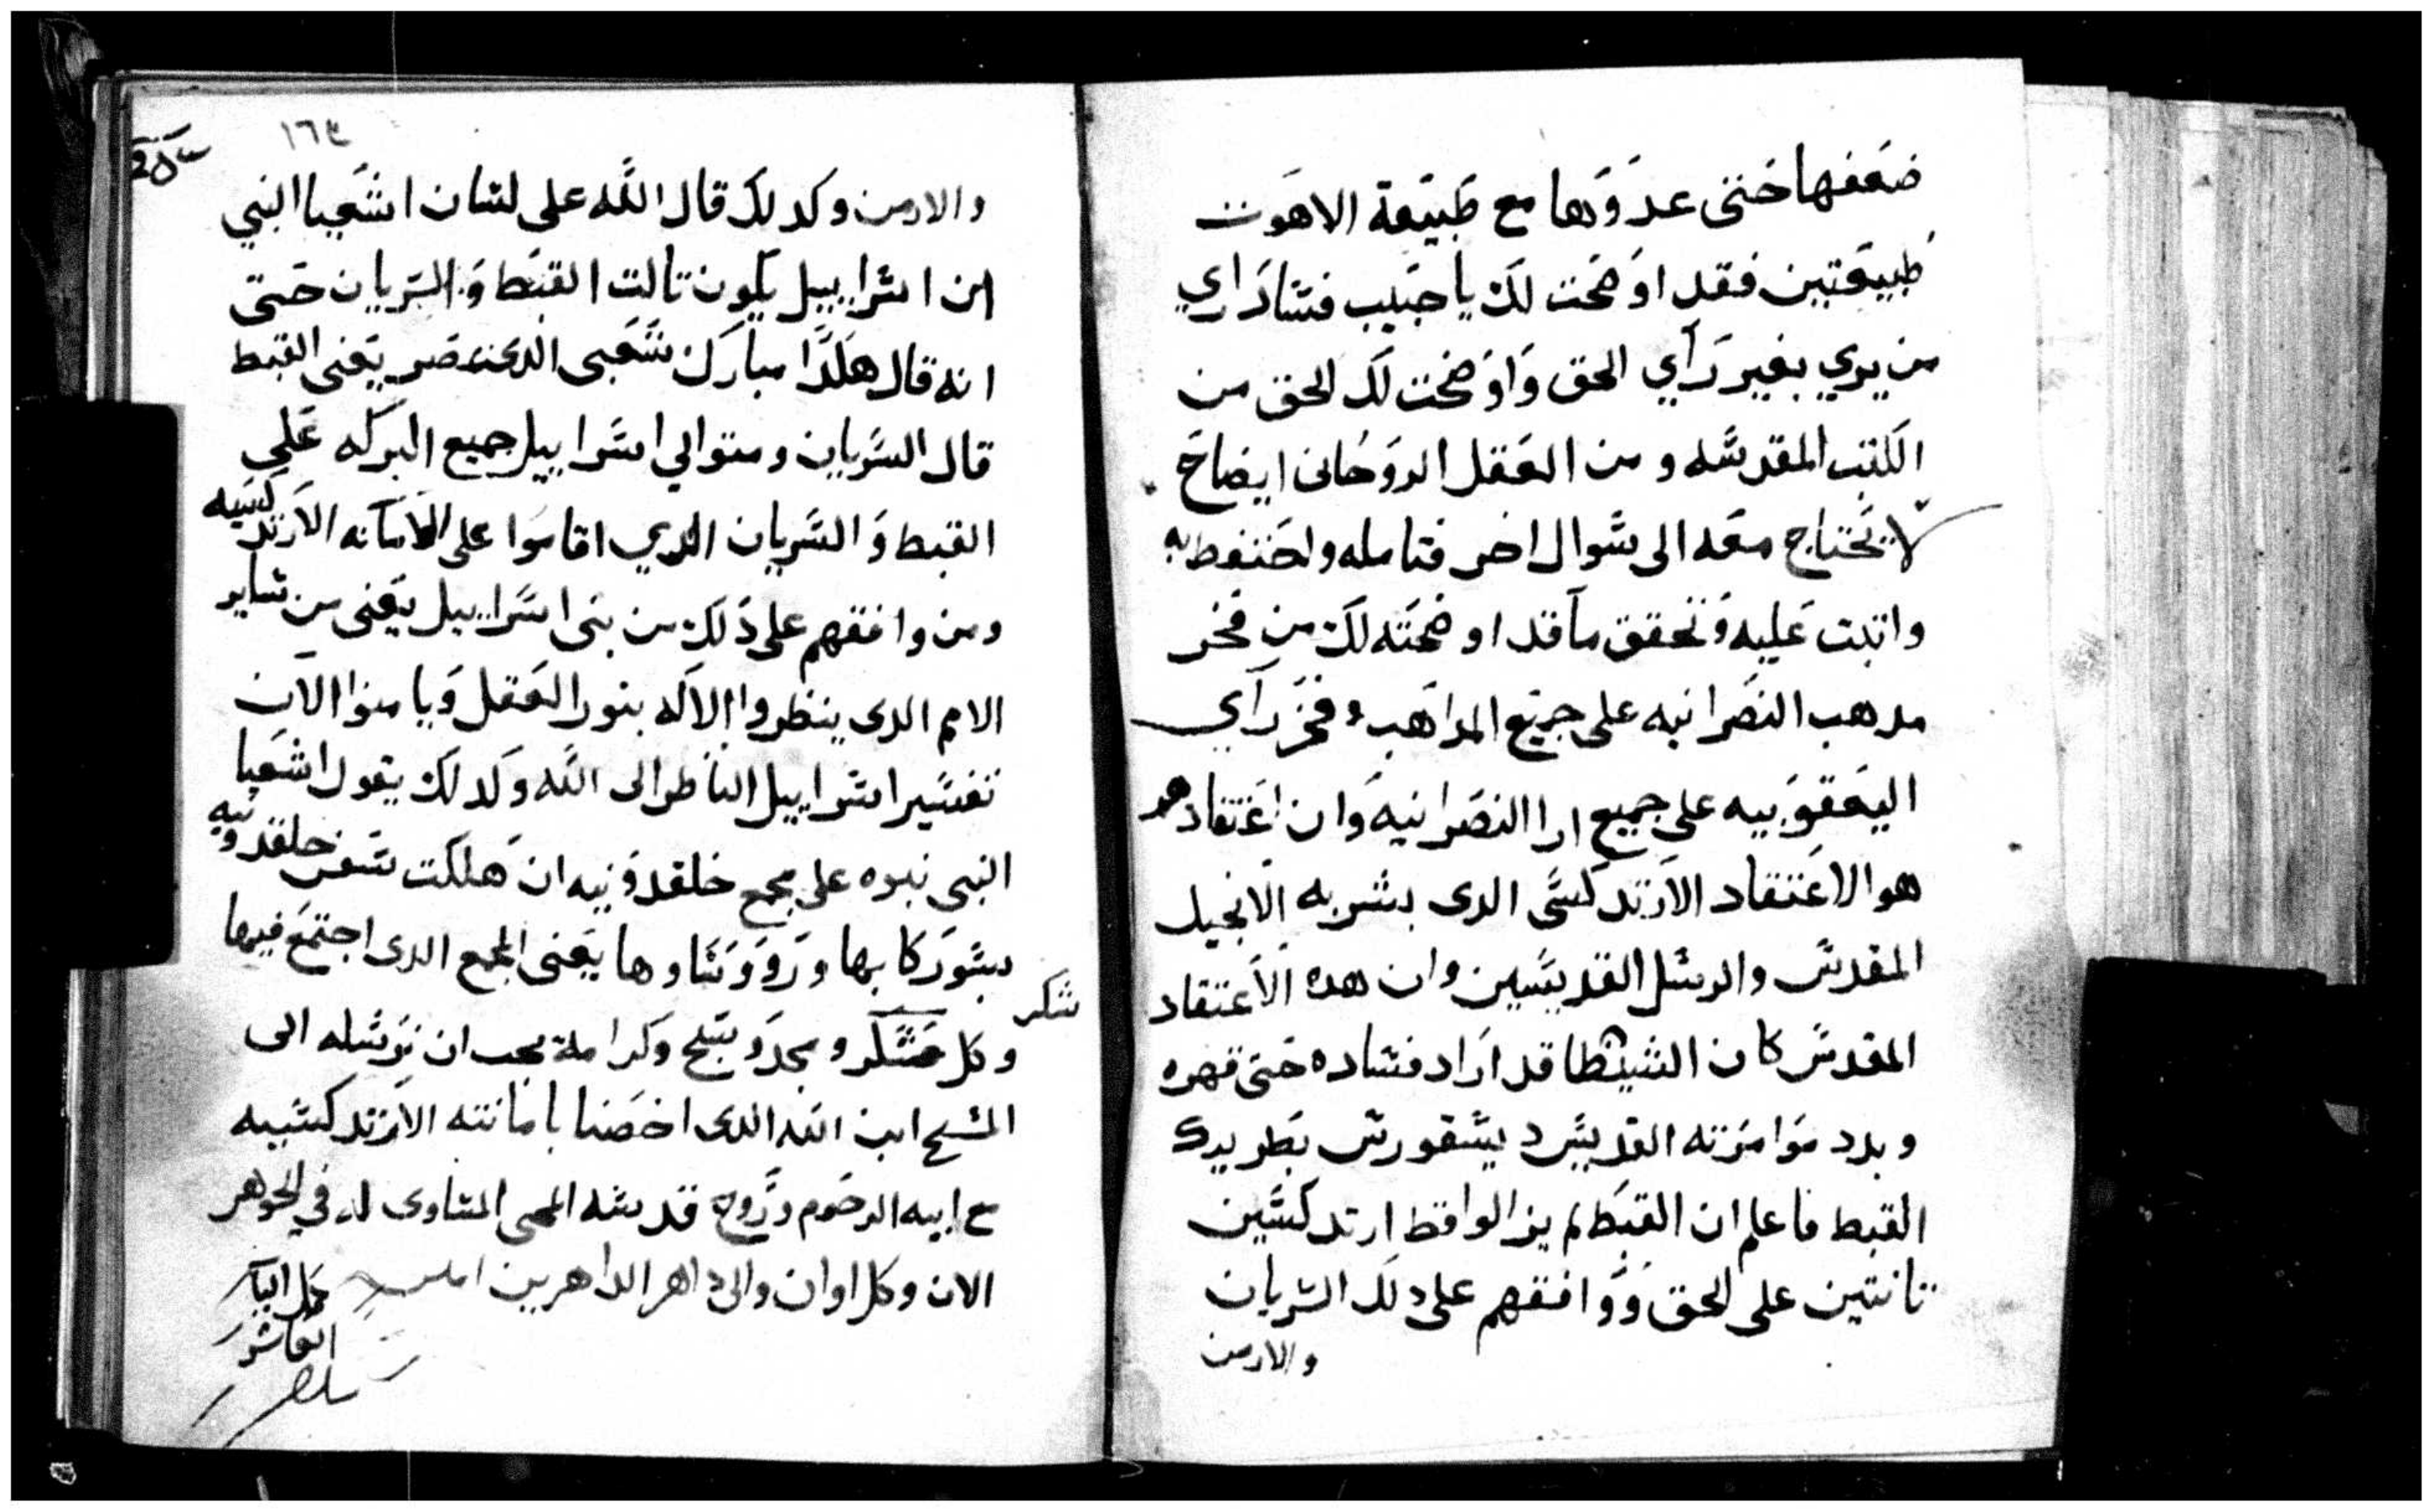 ضعفها حتى عدوها مع طبيعة الاهوت
طبيعتين فقد اوضحت لك يا حبيب فساد راي
من يري بغير رآي الحق واوضحت لك الحق من
الكتب المقدسه ومن العقل الروحانى ايضاح
لا تحتاج معه الى سوال اخر فتامله واحتفط به
واتبت عليه وتحقق ما قد اوضحته لك من فخر
مدهب النصرانيه على جميع المداهب وفخر رآي
اليعقوبيه على جميع ارا النصرانيه وان اعتقادهم
هو الاعتقاد الارتدكسى الدى بشر به الانجيل
المقدس والرسل القديسين وان هده الاعتقاد
المقدس كان الشيطان قد اراد فساده حتى قهره
وبدد موامرته القديس ديسقورس بطريرك
القبط فاعلم ان القبط لم يزالوا قط ارتدكسين
تانتين على الحق ووافقهم على دلك السريان
والارمن
١٦٤
والارمن وكدلك قال الله على لسان اشعيا النبي
ان اسراييل يكون تالت القبط والسريان حتى
انه قال هكدا مبارك شعبى الدى بمصر يعنى القبط
قال السريان ومتوالي اسراييل جميع البركه علي
القبط والسريان الدي اقاموا على الامانه الارتدكسيه
ومن وافقهم على دلك من بنى اسراييل يعنى من ساير
الامم الدى ينظروا الاله بنور العقل ويامنوا الان
تفسير اسراييل الناظر الى الله وكدلك يقول اشعيا
النبى نبوه على مجمع خلقدونيه ان هلكت سفن خلقدونيه
بسو ركابها وروونساوها يعنى المجمع الدى اجتمع فيها
وكل شكر ومجد وتسبح وكرامة يجب ان نرسله الى
شكر
المسيح ابن الله الدى اخصنا بامانته الارتدكسيه
مع ابيه الرحوم وروح قدسه المحى المساوى له في الجوهر
الان وكل اوان والى داهر الداهرين امين
كمل الباب
العاشر